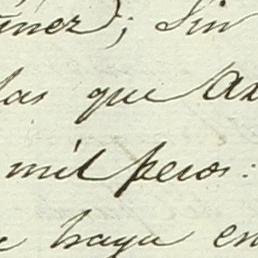 únez); Sin
las que ax
mil pesos:
e haya en